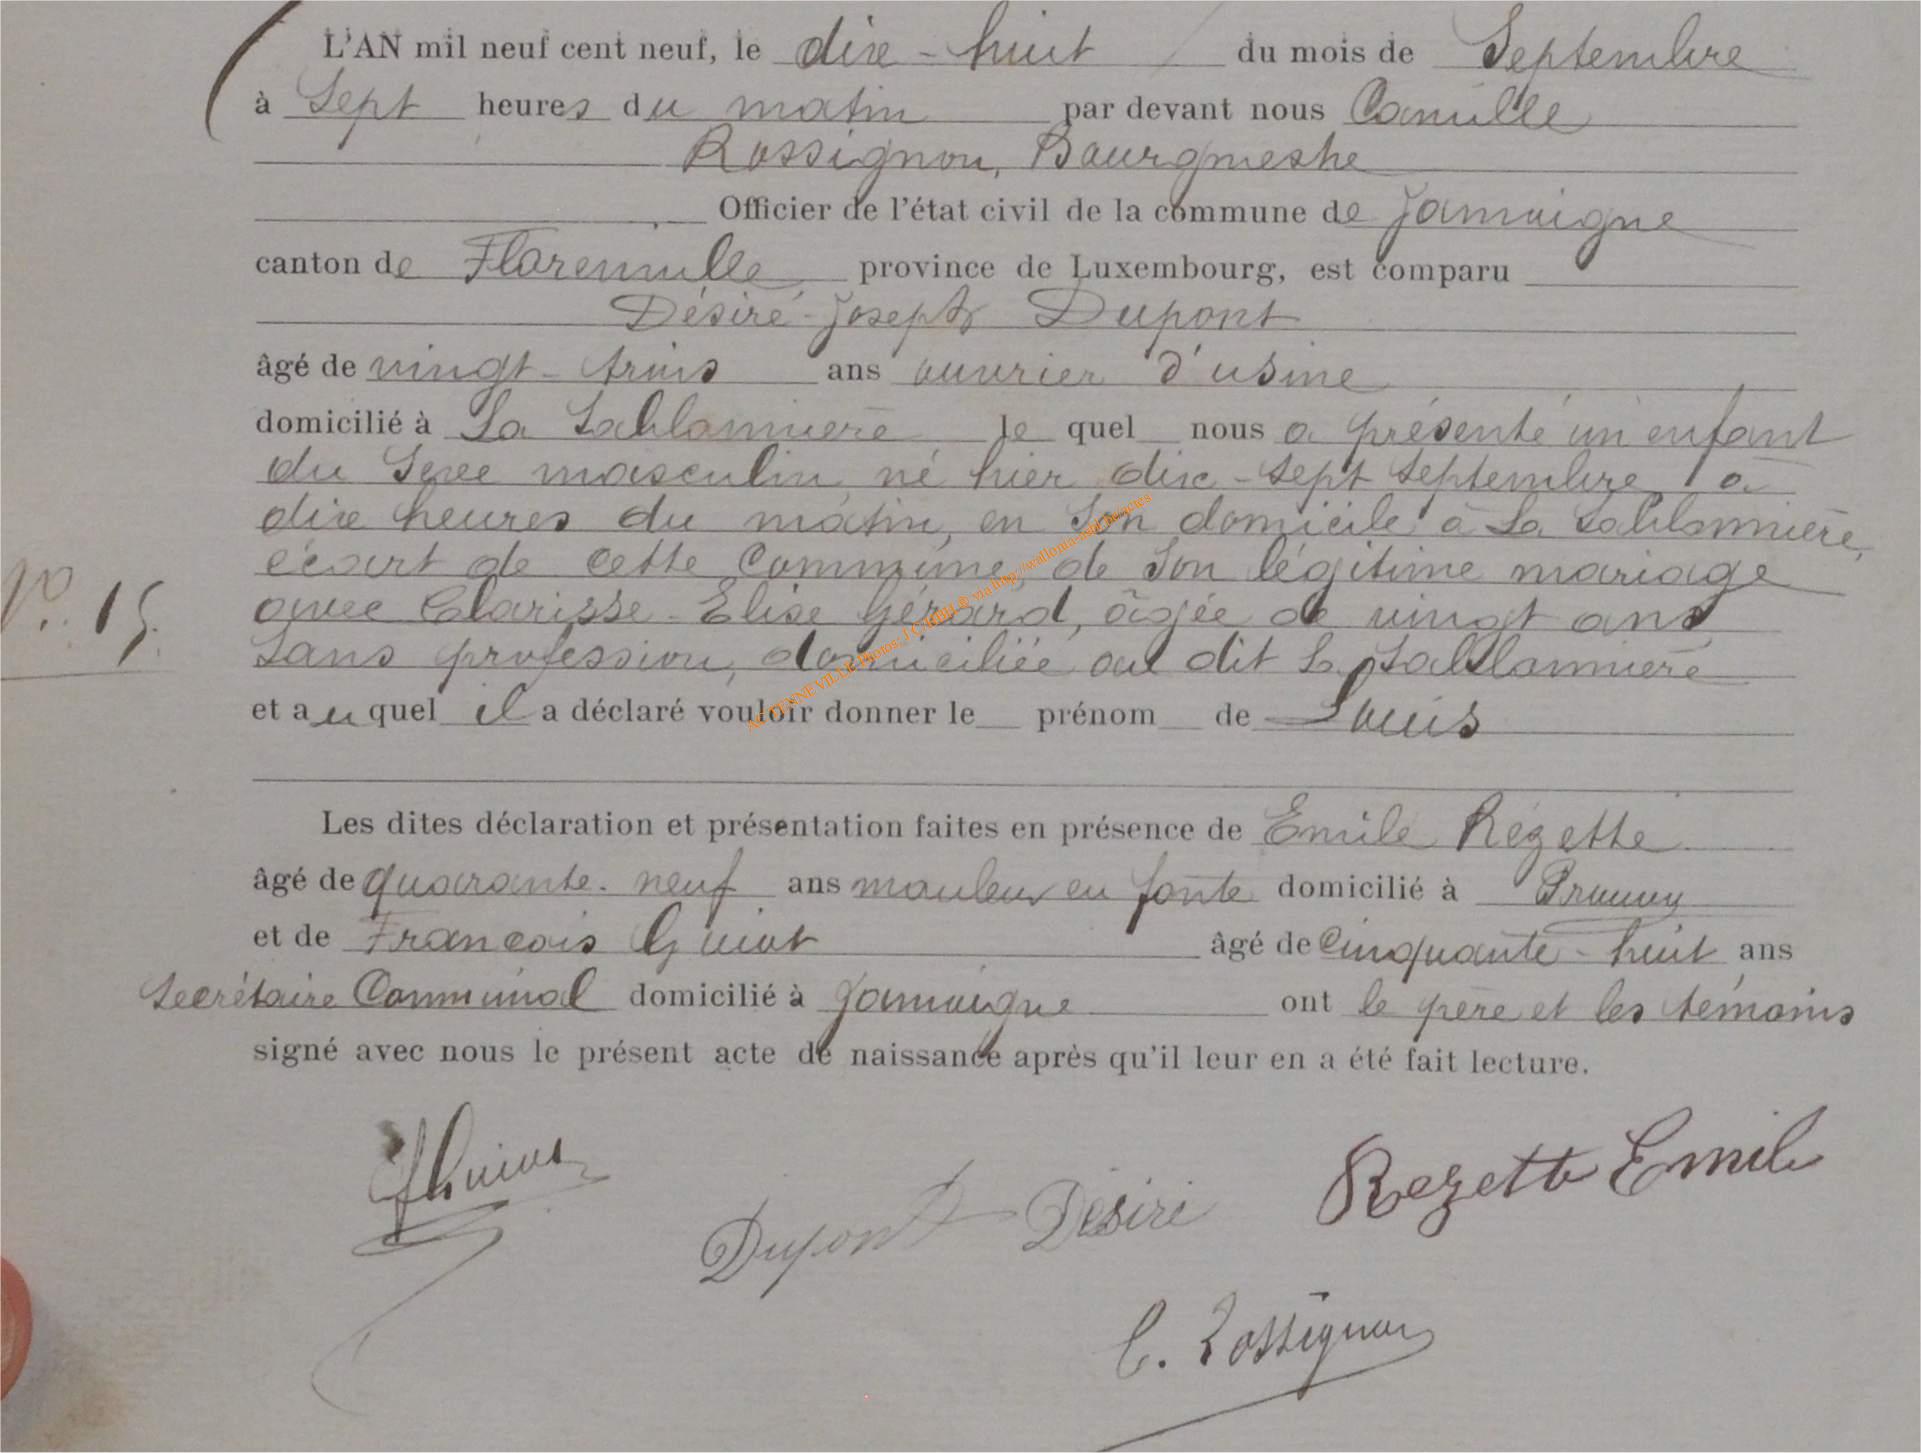 L'AN mil neuf cent neuf, le dix-huit du mois de Septembre
à Sept heures du matin par devant nous Camille
Rossignon, Bourgmestre
Officier de l'état civil de la commune de Jamoigne
canton de Florenville province de Luxembourg, est comparu
Désiré-Joseph Dupont
âgé de vingt-trois ans ouvrier d'usine
domicilié à La Sablonnière le quel nous a présenté un enfant
du Sexe masculin, né hier dix-sept Septembre, à
dix heures du matin, en Son domicile à La Sablonnière,
écart de cette Commune, de Son légitime mariage
avec Clarisse-Elise Gérard, âgée de vingt ans
Sans profession, domiciliée au dit La Sablonnière
N° 15.
et au quel il a déclaré vouloir donner le prénom de Louis
Les dites déclaration et présentation faites en présence de Emile Rézette
âgé de quarante-neuf ans mouleur en fonte domicilié à Prouvy
et de François Guiot âgé de Cinquante-huit ans
Secrétaire Communal domicilié à Jamoigne ont le père et les témoins
signé avec nous le présent acte de naissance après qu'il leur en a été fait lecture.
Dupont Désiré
Rezette Emile
C. Rossignon